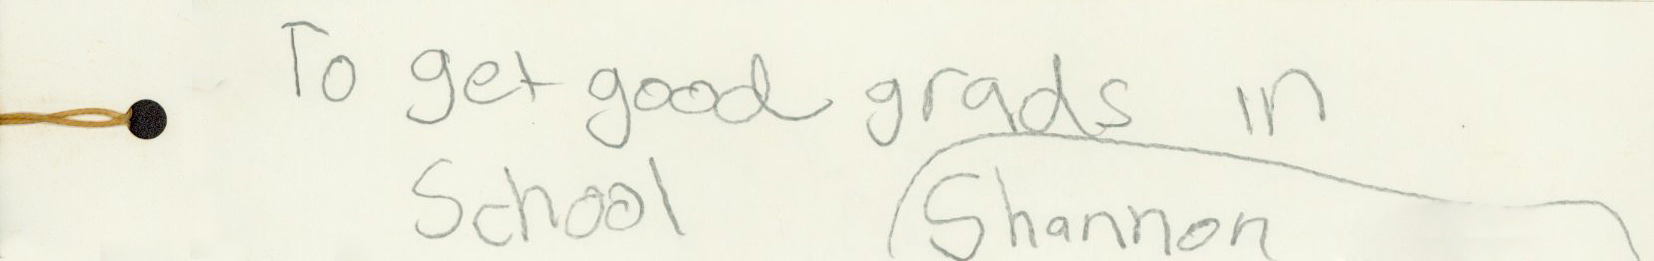 To get good grads in
School Shannon